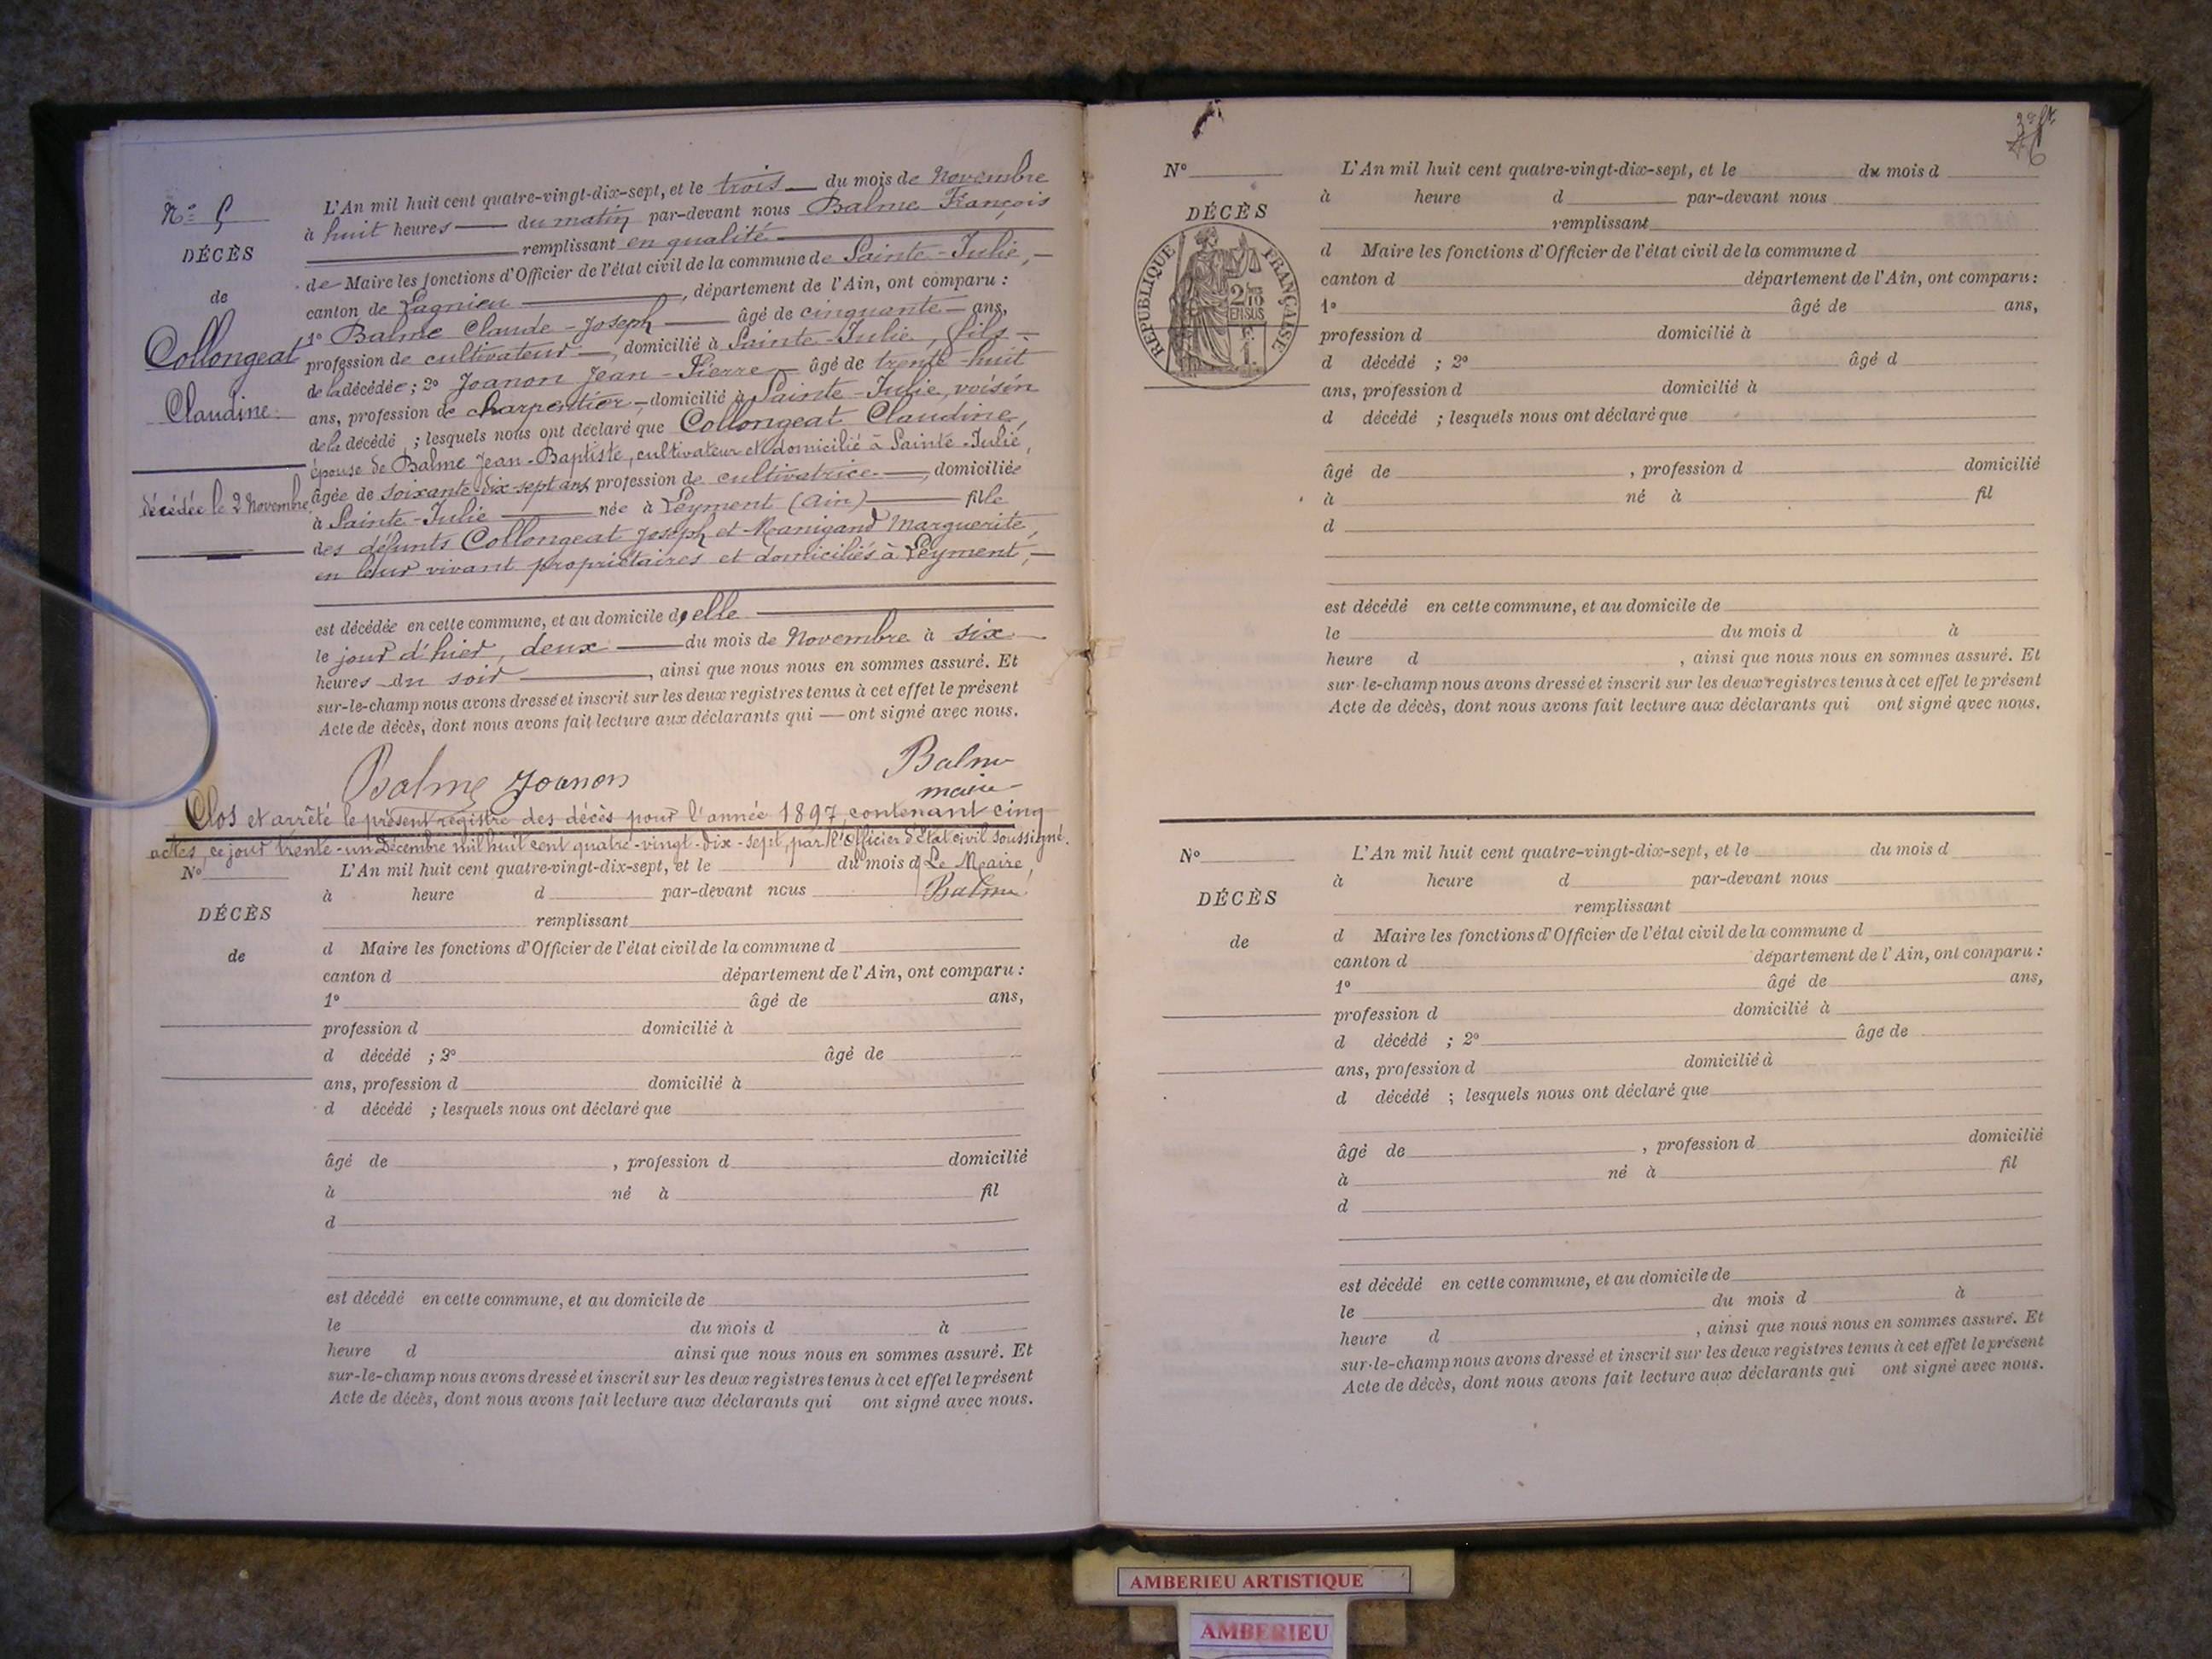 N° 5
DÉCÈS
de
Collongeat
Claudine
décédée le 2 Novembre
L'An mil huit cent quatre-vingt-dix-sept, et le trois du mois de Novembre
à huit heures du matin par-devant nous Balme François
remplissant en qualité
de Maire les fonctions d'Officier de l'état civil de la commune de Sainte-Julie,
canton de Lagnieu, département de l'Ain, ont comparu :
1° Balme Claude-Joseph âgé de cinquante ans,
profession de cultivateur, domicilié à Sainte-Julie, fils
de la décédée ; 2° Joanon Jean-Pierre âgé de trente-huit
ans, profession de charpentier, domicilié à Sainte-Julie, voisin
de la décédé ; lesquels nous ont déclaré que Collongeat Claudine,
épouse de Balme Jean-Baptiste, cultivateur et domicilié à Sainte-Julie,
âgée de soixante-dix-sept ans profession de cultivatrice, domiciliée
à Sainte-Julie née à Leyment (Ain) fille
des défunts Collongeat Joseph et Manigand Marguerite,
en leur vivant propriétaires et domiciliés à Leyment,
est décédée en cette commune, et au domicile d'elle
le jour d'hier, deux du mois de Novembre à six
heures du soir, ainsi que nous nous en sommes assuré. Et
sur-le-champ nous avons dressé et inscrit sur les deux registres tenus à cet effet le présent
Acte de décès, dont nous avons fait lecture aux déclarants qui ont signé avec nous.
Balme Joanon Balme
maire
Clos et arrêté le présent registre des décès pour l'année 1897, contenant cinq
actes, ce jour trente-un Décembre mil huit cent quatre-vingt-dix-sept, par l'Officier d'Etat civil soussigné.
Le Maire,
Balme
N°
DÉCÈS
de
L'An mil huit cent quatre-vingt-dix-sept, et le du mois d
à heure d par-devant nous
remplissant
d Maire les fonctions d'Officier de l'état civil de la commune d
canton d département de l'Ain, ont comparu :
1° âgé de ans,
profession d domicilié à
d décédé ; 2° âgé de
ans, profession d domicilié à
d décédé ; lesquels nous ont déclaré que
âgé de , profession d domicilié
à né à fil
d
est décédé en cette commune, et au domicile de
le du mois d à
heure d ainsi que nous nous en sommes assuré. Et
sur-le-champ nous avons dressé et inscrit sur les deux registres tenus à cet effet le présent
Acte de décès, dont nous avons fait lecture aux déclarants qui ont signé avec nous.
N°
DÉCÈS
RÉPUBLIQUE FRANÇAISE
2/10
EN SUS
F.
1.
L'An mil huit cent quatre-vingt-dix-sept, et le du mois d
à heure d par-devant nous
remplissant
d Maire les fonctions d'Officier de l'état civil de la commune d
canton d département de l'Ain, ont comparu :
1° âgé de ans,
profession d domicilié à
d décédé ; 2° âgé d
ans, profession d domicilié à
d décédé ; lesquels nous ont déclaré que
âgé de , profession d domicilié
à né à fil
d
est décédé en cette commune, et au domicile de
le du mois d à
heure d , ainsi que nous nous en sommes assuré. Et
sur-le-champ nous avons dressé et inscrit sur les deux registres tenus à cet effet le présent
Acte de décès, dont nous avons fait lecture aux déclarants qui ont signé avec nous.
N°
DÉCÈS
de
L'An mil huit cent quatre-vingt-dix-sept, et le du mois d
à heure d par-devant nous
remplissant
d Maire les fonctions d'Officier de l'état civil de la commune d
canton d département de l'Ain, ont comparu :
1° âgé de ans,
profession d domicilié à
d décédé ; 2° âgé de
ans, profession d domicilié à
d décédé ; lesquels nous ont déclaré que
âgé de , profession d domicilié
à né à fil
d
est décédé en cette commune, et au domicile de
le du mois d à
heure d , ainsi que nous nous en sommes assuré. Et
sur-le-champ nous avons dressé et inscrit sur les deux registres tenus à cet effet le présent
Acte de décès, dont nous avons fait lecture aux déclarants qui ont signé avec nous.
AMBERIEU ARTISTIQUE
AMBERIEU